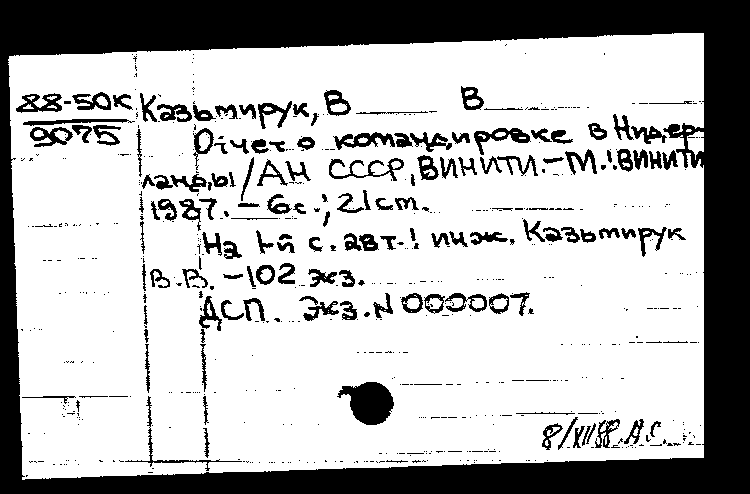 88-50К
9075
Казьмирук, В В
Отчет о командировке в Нидер-
ланды / АН СССР, ВИНИТИ. - М.: ВИНИТИ
1987. - 6с.; 21 cm.
На 1-й с. авт.: инж. Казьмирук
В.В. - 102 экз.
ДСП. Экз. N 000007.
8/XII 88. А.С.